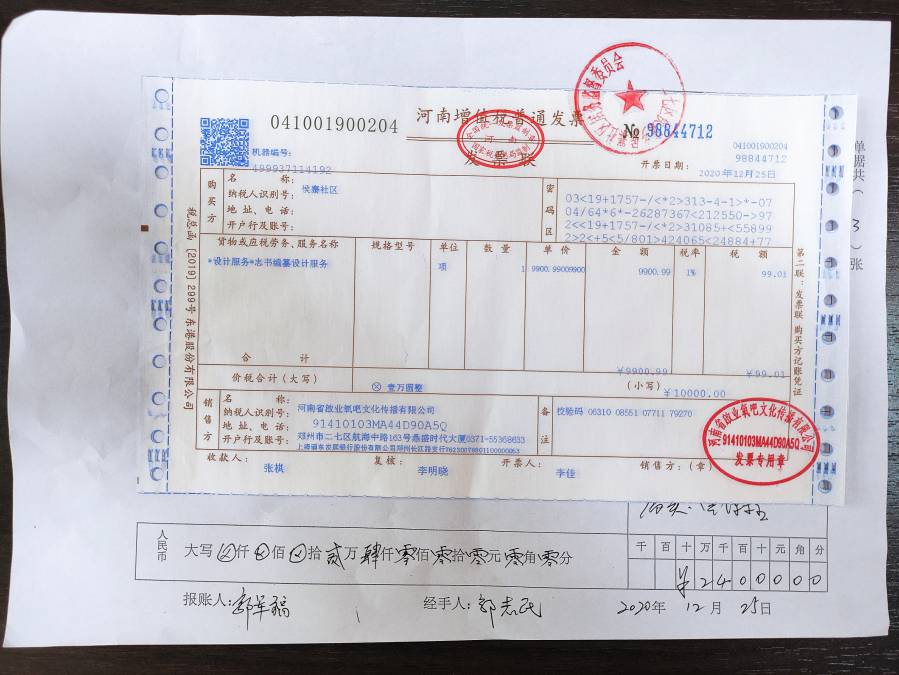 041001900204
河南增值税普通发票
发票联
№ 98844712
041001900204
98844712
机器编号:
499937114192
开票日期: 2020年12月25日
购买方
名 称: 侯寨社区
纳税人识别号:
地 址、电 话:
开户行及账号:
密码区
03<19+1757-/<*2>313-4-1>*-07
04/64*6*-26287367<212550->97
2<<19+1757-/<*2>31085+<55899
2>2<+5<5/801>424065<24884+77
货物或应税劳务、服务名称 规格型号 单位 数 量 单 价 金 额 税率 税 额
*设计服务*志书编纂设计服务 项 1 9900.99009900 9900.99 1% 99.01
合 计 ¥9900.99 ¥99.01
价税合计(大写) ⊗ 壹万圆整 (小写) ¥10000.00
销售方
名 称: 河南省啟业氧吧文化传播有限公司
纳税人识别号: 91410103MA44D90A5Q
地 址、电 话: 郑州市二七区航海中路163号鼎盛时代大厦0371-55368633
开户行及账号: 上海浦东发展银行股份有限公司郑州长江路支行76230078801100000063
备注
校验码 06310 08551 07711 79270
收款人: 张棋 复核: 李明晓 开票人: 李佳 销售方:(章)
税总函[2019]299号东港股份有限公司
第二联:发票联 购买方记账凭证
河南省啟业氧吧文化传播有限公司
91410103MA44D90A5Q
发票专用章
单据共(3)张
人民币
大写 ⊗仟⊗佰⊗拾贰万肆仟零佰零拾零元零角零分
千 百 十 万 千 百 十 元 角 分
¥2400000
报账人: 郭军福 经手人: 郭志民 2020年 12月 25日